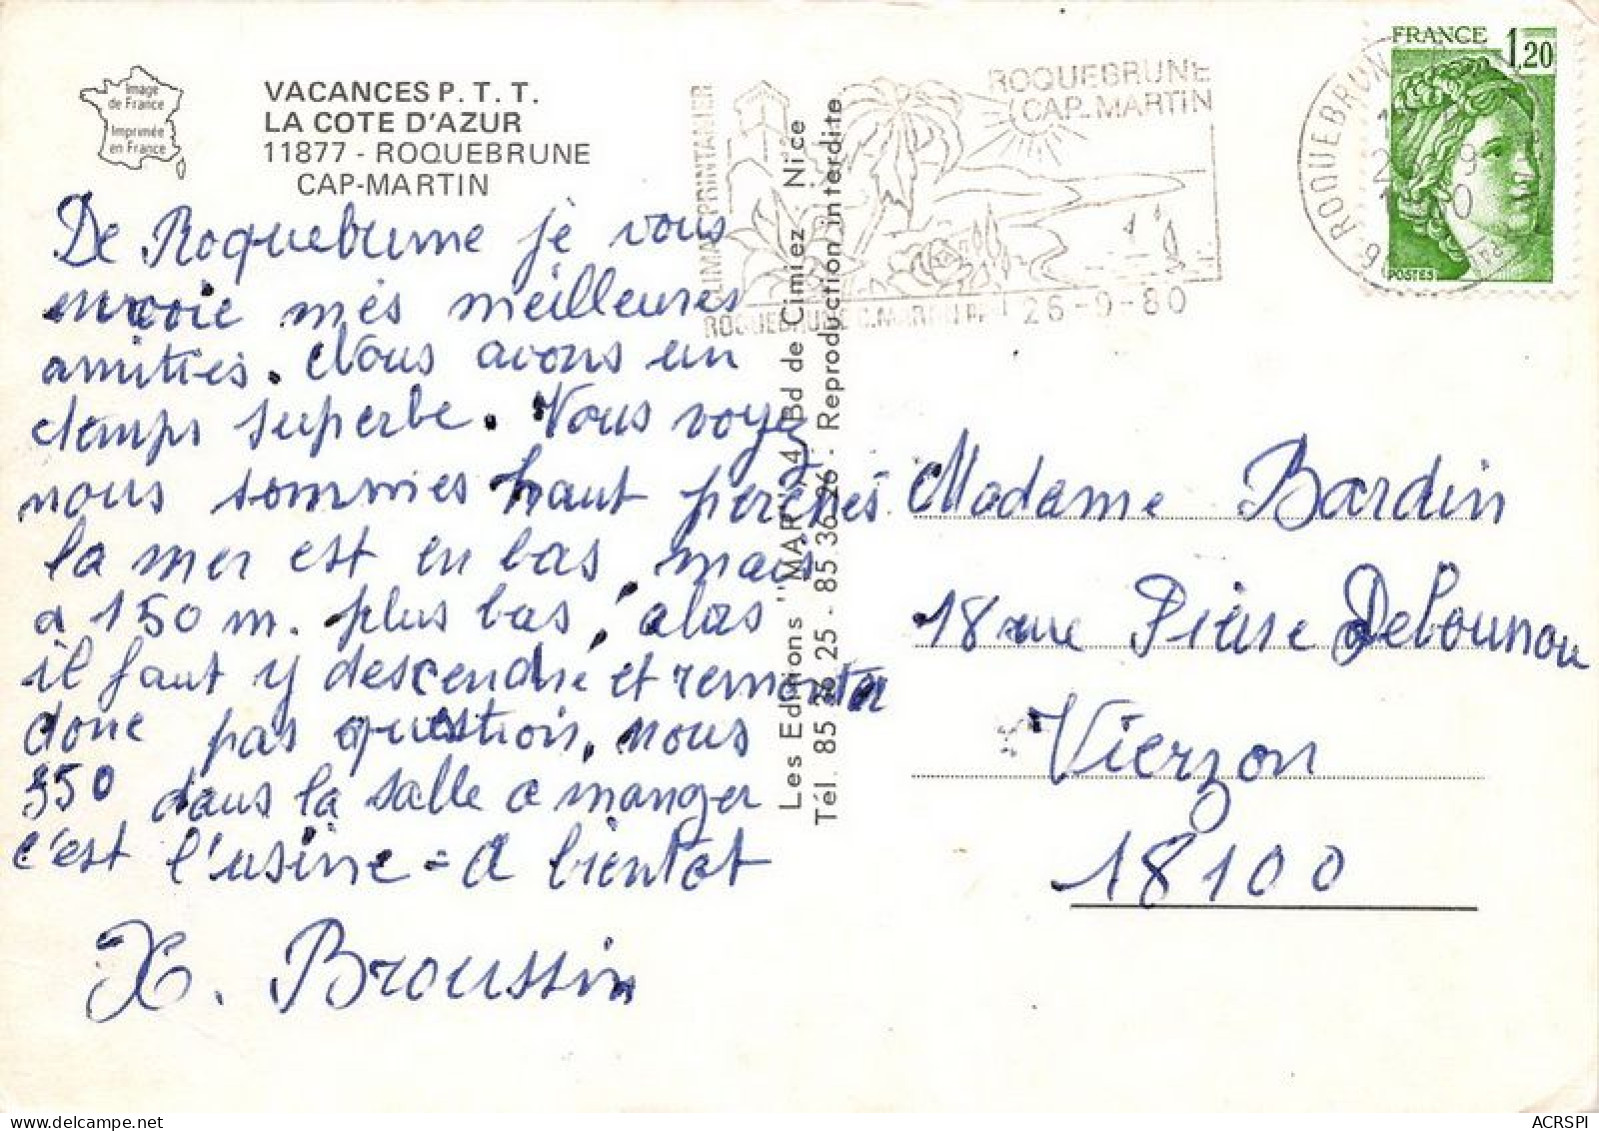 Image
de France
Imprimée
en France
VACANCES P. T. T.
LA COTE D'AZUR
11877 - ROQUEBRUNE
CAP-MARTIN
De Roquebrune je vous
envoie mes meilleures
amitiés. Nous avons un
temps superbe. Vous voyez
nous sommes haut perchés
la mer est en bas, mais
a 150 m. plus bas, alas
il faut y descendre et remonter
donc pas question, nous
350 dans la salle a manger
c'est l'usine = A bientot
X. Broussin
Les Editions "MAR", 4, Bd de Cimiez - Nice
Tél. 85 36 25 - 85.36.96 - Reproduction interdite
PRINTANIER
ROQUEBRUNE
CAP-MARTIN
ROQUEBRUNE C. MARTIN
26-9-80
FRANCE 1,20
POSTES
ROQUEBRUN
Madame Bardin
18 rue Pierre
Vierzon
18100
ACRSPI